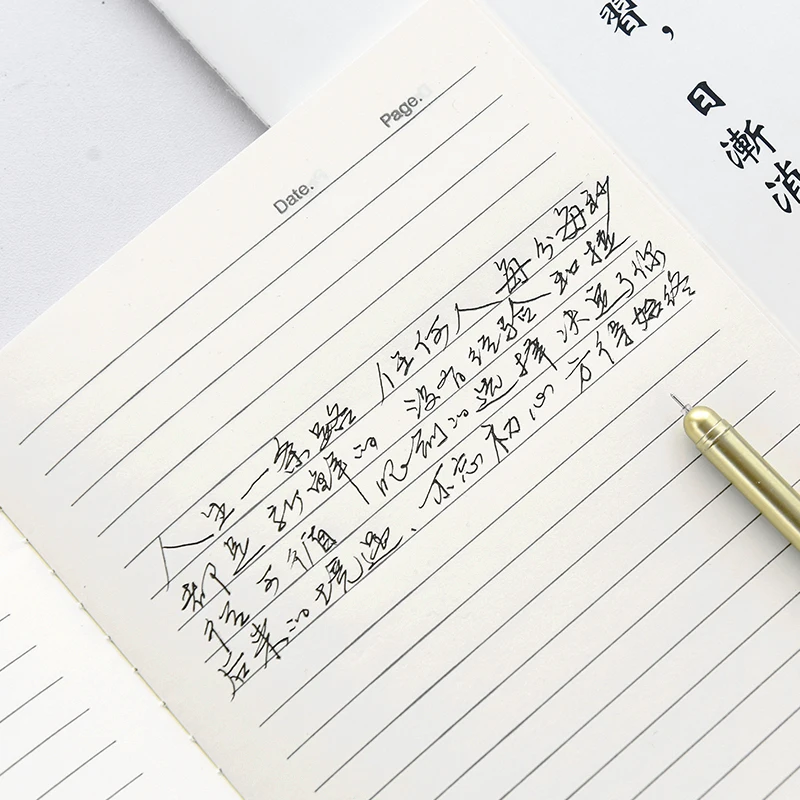 Page.
Date.
人生一条路 任何人每分每秒
都是新鲜的 没有经验和捷
径可循 眼前的选择决定了你
后来的境遇、不忘初心 方得始终
習，
日漸消